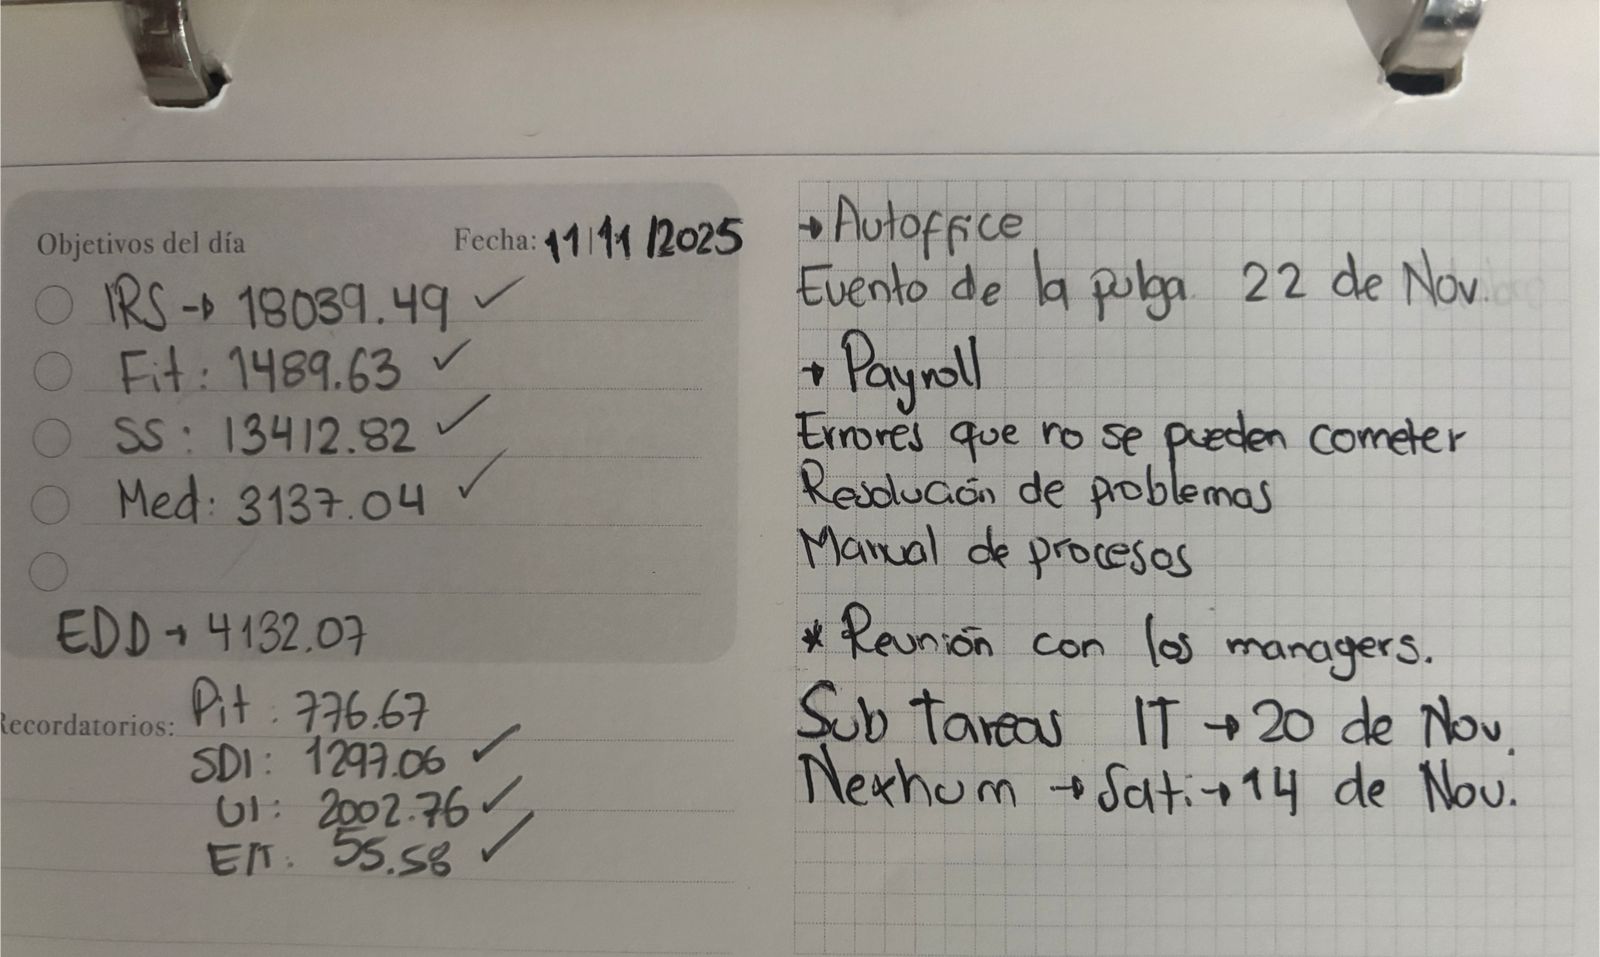 Objetivos del día Fecha: 11/11/2025
IRS → 18039.49 ✓
Fit: 1489.63 ✓
SS: 13412.82 ✓
Med: 3137.04 ✓
EDD → 4132.07
Recordatorios: Pit: 776.67
SDI: 1297.06 ✓
UI: 2002.76 ✓
ETT: 55.58 ✓
→ Autoffice
Evento de la pulga 22 de Nov.
→ Payroll
Errores que no se pueden cometer
Resolución de problemas
Manual de procesos
* Reunión con los managers.
Sub tareas IT → 20 de Nov.
Nexhum → Sati → 14 de Nov.